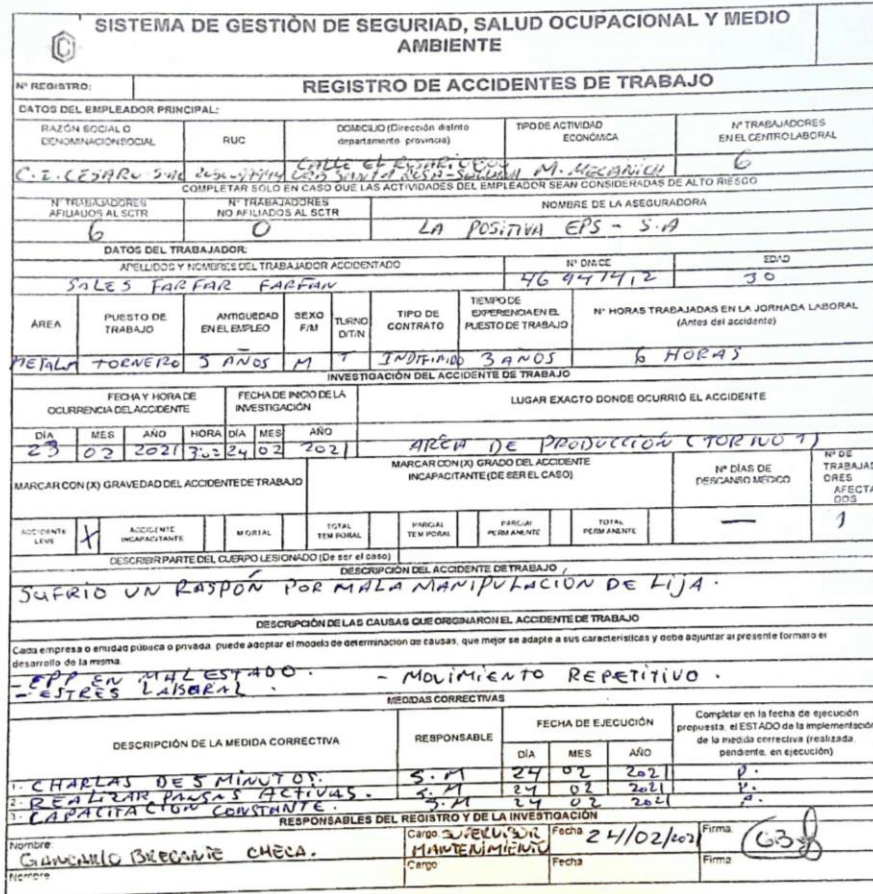 SISTEMA DE GESTIÒN DE SEGURIAD, SALUD OCUPACIONAL Y MEDIO
AMBIENTE
Nº REGISTRO:
REGISTRO DE ACCIDENTES DE TRABAJO
DATOS DEL EMPLEADOR PRINCIPAL:
RAZÓN SOCIAL O DENOMINACIÓN SOCIAL
RUC
DOMICILIO (Dirección distrito departamento provincia)
TIPO DE ACTIVIDAD ECONÓMICA
Nº TRABAJADORES EN EL CENTRO LABORAL
C.I. CESARU SAC
CALLE EL ROSARIO
URB SANTA ROSA
M. MECANICA
6
COMPLETAR SOLO EN CASO QUE LAS ACTIVIDADES DEL EMPLEADOR SEAN CONSIDERADAS DE ALTO RIESGO
Nº TRABAJADORES AFILIADOS AL SCTR
Nº TRABAJADORES NO AFILIADOS AL SCTR
NOMBRE DE LA ASEGURADORA
6
0
LA POSITIVA EPS - S.A
DATOS DEL TRABAJADOR:
APELLIDOS Y NOMBRES DEL TRABAJADOR ACCIDENTADO
Nº DNI/CE
EDAD
SALES FARFAR FARFAN
46947412
30
ÁREA
PUESTO DE TRABAJO
ANTIGUEDAD EN EL EMPLEO
SEXO F/M
TURNO D/T/N
TIPO DE CONTRATO
TIEMPO DE EXPERIENCIA EN EL PUESTO DE TRABAJO
Nº HORAS TRABAJADAS EN LA JORNADA LABORAL (Antes del accidente)
METALM
TORNERO
AÑOS
M
T
3 AÑOS
6 HORAS
INVESTIGACIÓN DEL ACCIDENTE DE TRABAJO
FECHA Y HORA DE OCURRENCIA DEL ACCIDENTE
FECHA DE INICIO DE LA INVESTIGACIÓN
LUGAR EXACTO DONDE OCURRIÓ EL ACCIDENTE
DÍA
MES
AÑO
HORA
DÍA
MES
AÑO
23
02
2021
24
02
2021
AREA DE PRODUCCIÓN (TORNO 1)
MARCAR CON (X) GRAVEDAD DEL ACCIDENTE DE TRABAJO
MARCAR CON (X) GRADO DEL ACCIDENTE INCAPACITANTE (DE SER EL CASO)
Nº DÍAS DE DESCANSO MÉDICO
Nº DE TRABAJADORES AFECTADOS
ACCIDENTE LEVE
X
ACCIDENTE INCAPACITANTE
MORTAL
TOTAL TEMPORAL
PARCIAL TEMPORAL
PARCIAL PERMANENTE
TOTAL PERMANENTE
—
1
DESCRIBIR PARTE DEL CUERPO LESIONADO (De ser el caso)
DESCRIPCIÓN DEL ACCIDENTE DE TRABAJO
SUFRIÓ UN RASPÓN POR MALA MANIPULACIÓN DE LIJA.
DESCRIPCIÓN DE LAS CAUSAS QUE ORIGINARON EL ACCIDENTE DE TRABAJO
Cada empresa o entidad pública o privada, puede adoptar el modelo de determinación de causas, que mejor se adapte a sus características y debe adjuntar al presente formato el
desarrollo de la misma.
- EPP EN MAL ESTADO. - MOVIMIENTO REPETITIVO.
- ESTRES LABORAL.
MEDIDAS CORRECTIVAS
DESCRIPCIÓN DE LA MEDIDA CORRECTIVA
RESPONSABLE
FECHA DE EJECUCIÓN
Completar en la fecha de ejecución propuesta, el ESTADO de la implementación de la medida correctiva (realizada, pendiente, en ejecución)
DÍA
MES
AÑO
1- CHARLAS DE 5 MINUTOS. S.M 24 02 2021 P.
2- REALIZAR PAUSAS ACTIVAS. S.M 24 02 2021 P.
3- CAPACITACIÓN CONSTANTE. S.M 24 02 2021 P.
RESPONSABLES DEL REGISTRO Y DE LA INVESTIGACIÓN
Nombre: GIANCARLO CHECA.
Cargo SUPERVISOR MANTENIMIENTO
Fecha 24/02/2021
Firma
Nombre
Cargo
Fecha
Firma